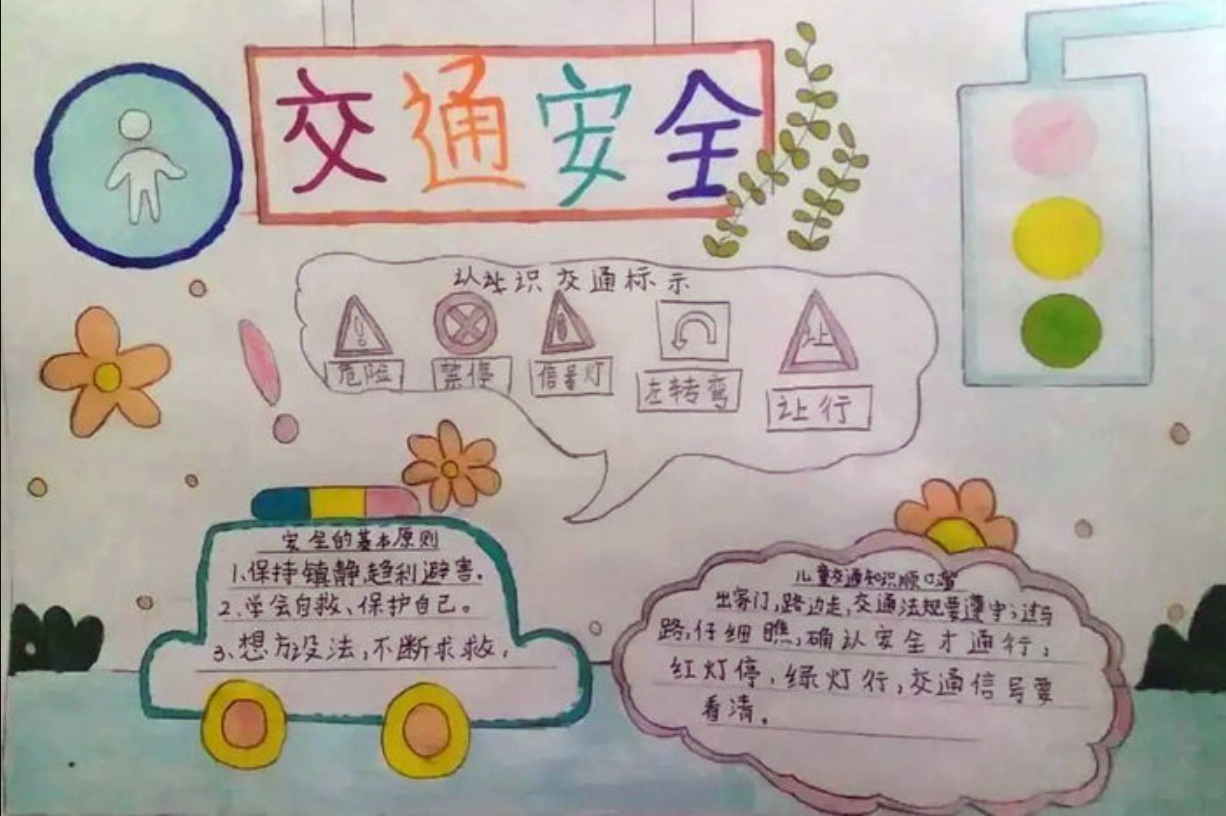 交通安全
认识交通标示
危险
禁停
信号灯
左转弯
让
让行
安全的基本原则
1.保持镇静,趋利避害。
2、学会自救、保护自己。
3、想方设法,不断求救,
儿童交通知识顺口溜
出家门,路边走,交通法规要遵守;过马
路,仔细瞧,确认安全才通行;
红灯停,绿灯行,交通信号要
看清。